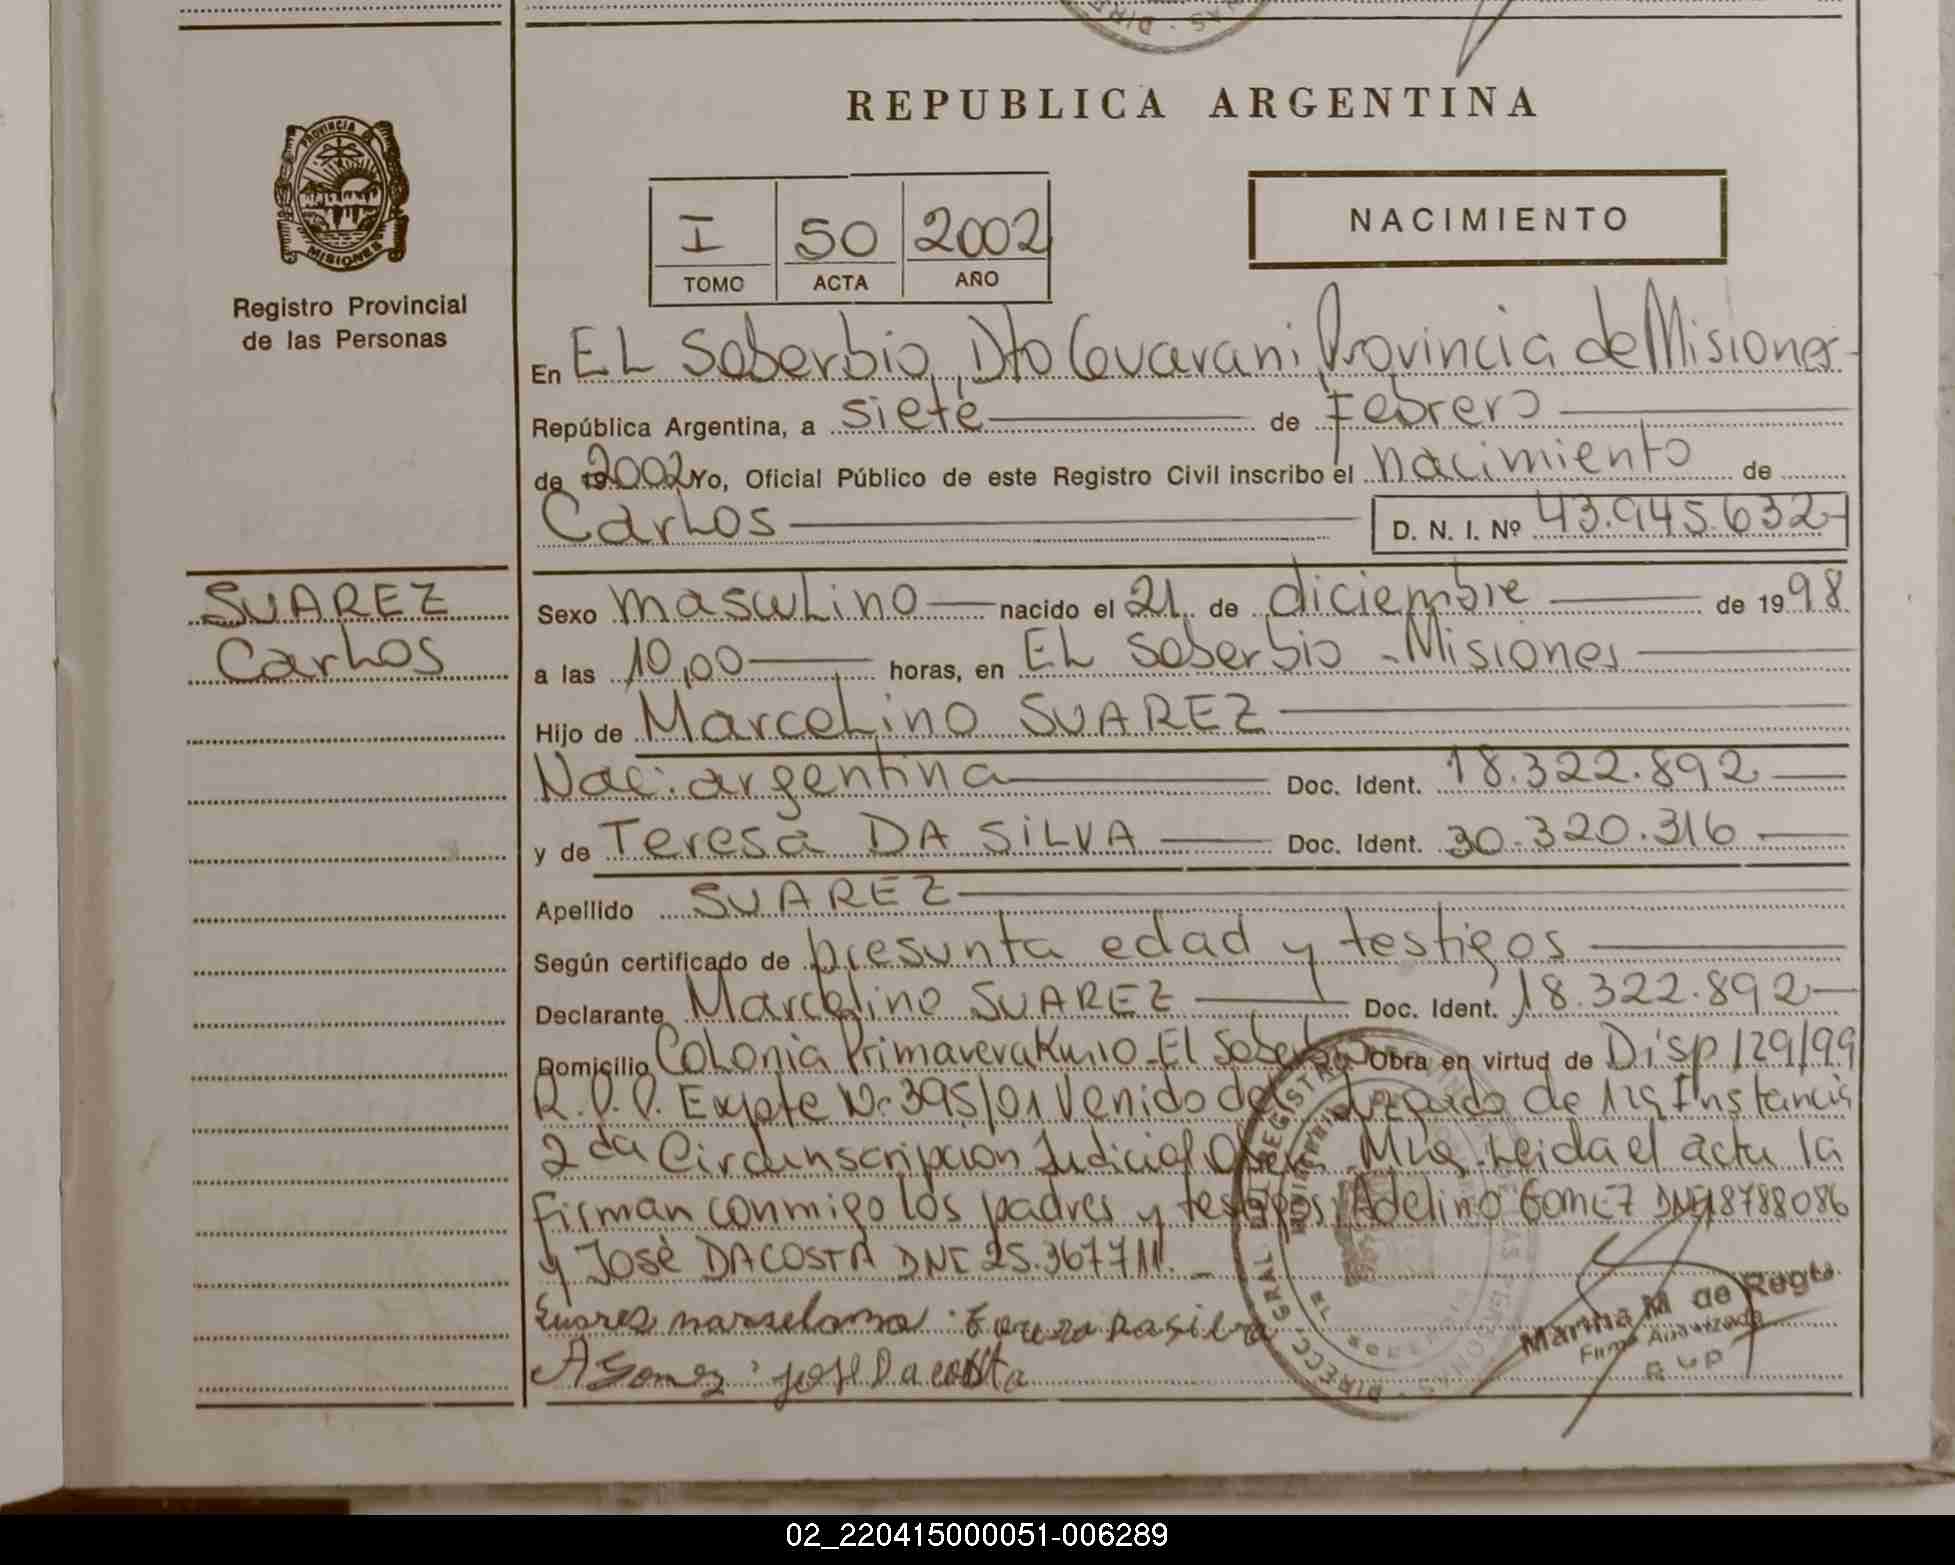 REPUBLICA ARGENTINA
PROVINCIA DE
MISIONES
Registro Provincial
de las Personas
I 50 2002
TOMO ACTA AÑO
NACIMIENTO
En EL Soberbio, Dto Guarani Provincia de Misiones
República Argentina, a siete de Febrero
de 19 2002 Yo, Oficial Público de este Registro Civil inscribo el nacimiento de
Carlos D. N. I. Nº 43.945.632
SUAREZ
Carlos
Sexo masculino nacido el 21 de diciembre de 1998
a las 10,00 horas, en EL Soberbio - Misiones
Hijo de Marcelino SUAREZ
Nac: argentina Doc. Ident. 18.322.892
y de Teresa DA SILVA Doc. Ident. 30.320.316
Apellido SUAREZ
Según certificado de presunta edad y testigos
Declarante Marcelino SUAREZ Doc. Ident. 18.322.892
Domicilio Colonia Primavera Km 10 - El Soberbio Obra en virtud de Disp 129/99
R.P.P. Expte Nº 395/01 Venido del Juzgado de 1ra Instancia
2da Circunscripcion Judicial Mnes. Leida el acta la
firman conmigo los padres y testigos: Adelino Gomez DNI 18788086
y José DACOSTA DNI 25.367711.
A Gomez jose Da costa
Marina M de
Firma Autorizada
RVP
02_220415000051-006289